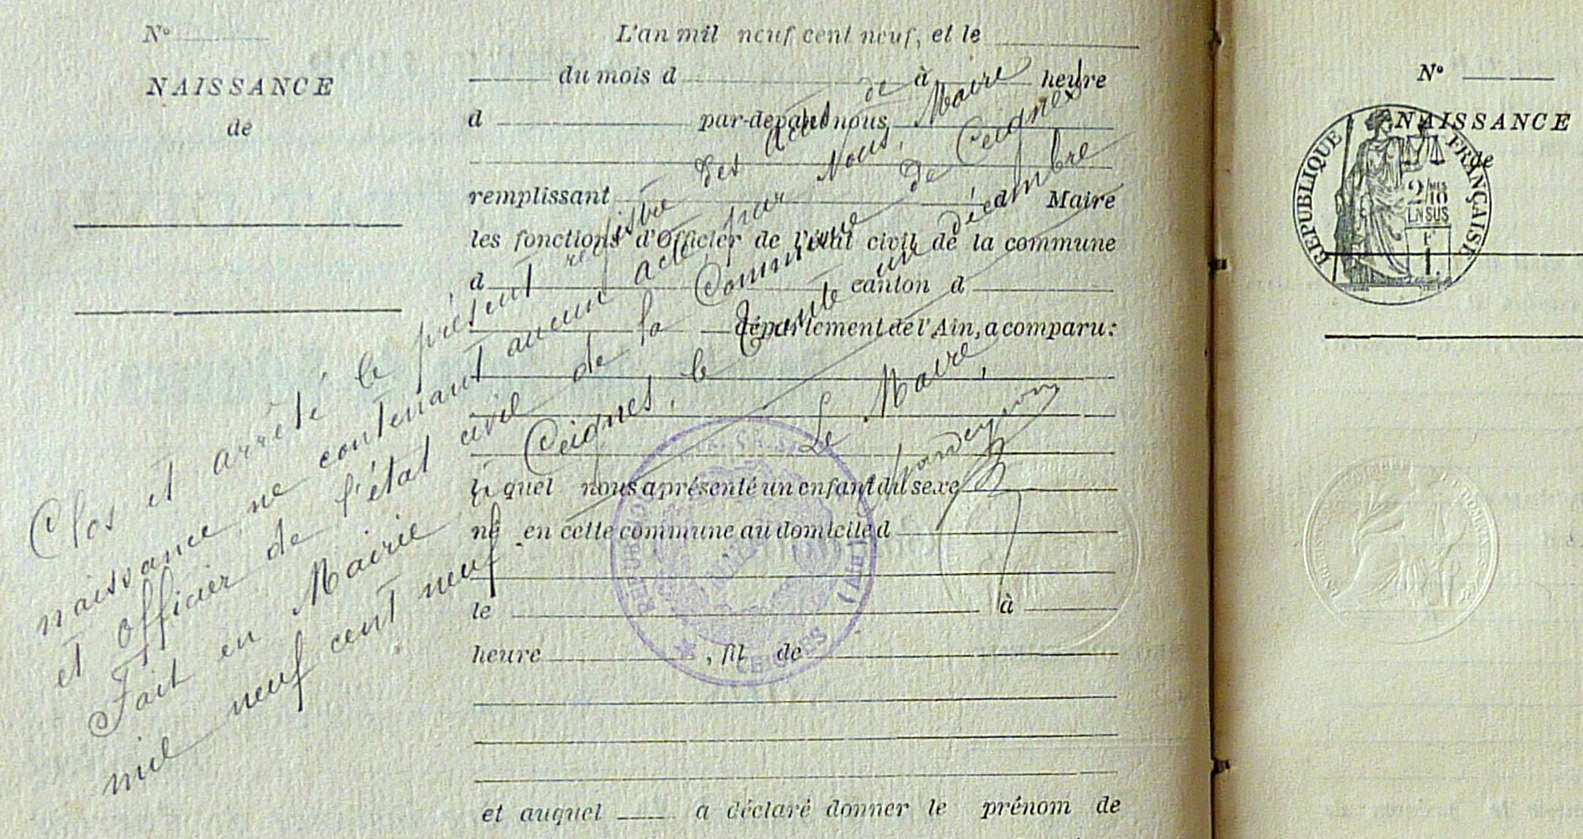 N°
NAISSANCE
de
L'an mil neuf cent neuf, et le
du mois d à heure
d par-devant nous
remplissant d Maire
les fonctions d'Officier de l'état civil de la commune
d canton d
département de l'Ain, a comparu:
l quel nous a présenté un enfant du sexe
né en cette commune au domicile d
le à
heure , fil de
et auquel a déclaré donner le prénom de
Clos et arrêté le présent registre des actes de
naissance, ne contenant aucun acte, par Nous, Maire
et Officier de l'état civil de la Commune de Ceignes
Fait en Mairie à Ceignes, le trente un décembre
mil neuf cent neuf.
Le Maire,
CEIGNES
(Ain)
N°
NAISSANCE
de
RÉPUBLIQUE FRANÇAISE
2/10
EN SUS